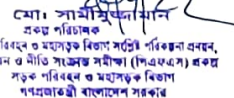 মো: সামীমুজ্জামান
প্রকল্প পরিচালক
পরিবহন ও মহাসড়ক বিভাগ সংশ্লিষ্ট পরিকল্পনা প্রনয়ন,
ন ও নীতি সংক্রান্ত সমীক্ষা (পিএমএস) প্রকল্প
সড়ক পরিবহন ও মহাসড়ক বিভাগ
গণপ্রজাতন্ত্রী বাংলাদেশ সরকার